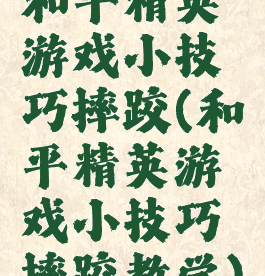 和平精英
游戏小技
巧摔跤(和
平精英游
戏小技巧
摔跤教学)